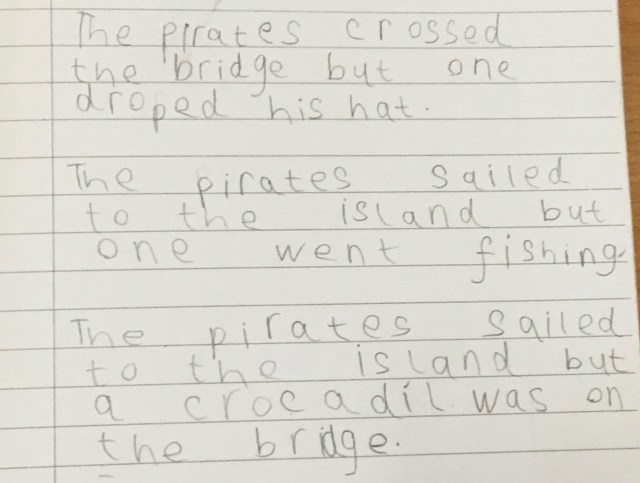 The pirates crossed
the bridge but one
droped his hat.
The pirates sailed
to the island but
one went fishing
The pirates sailed
to the island but
a crocadil was on
the bridge.